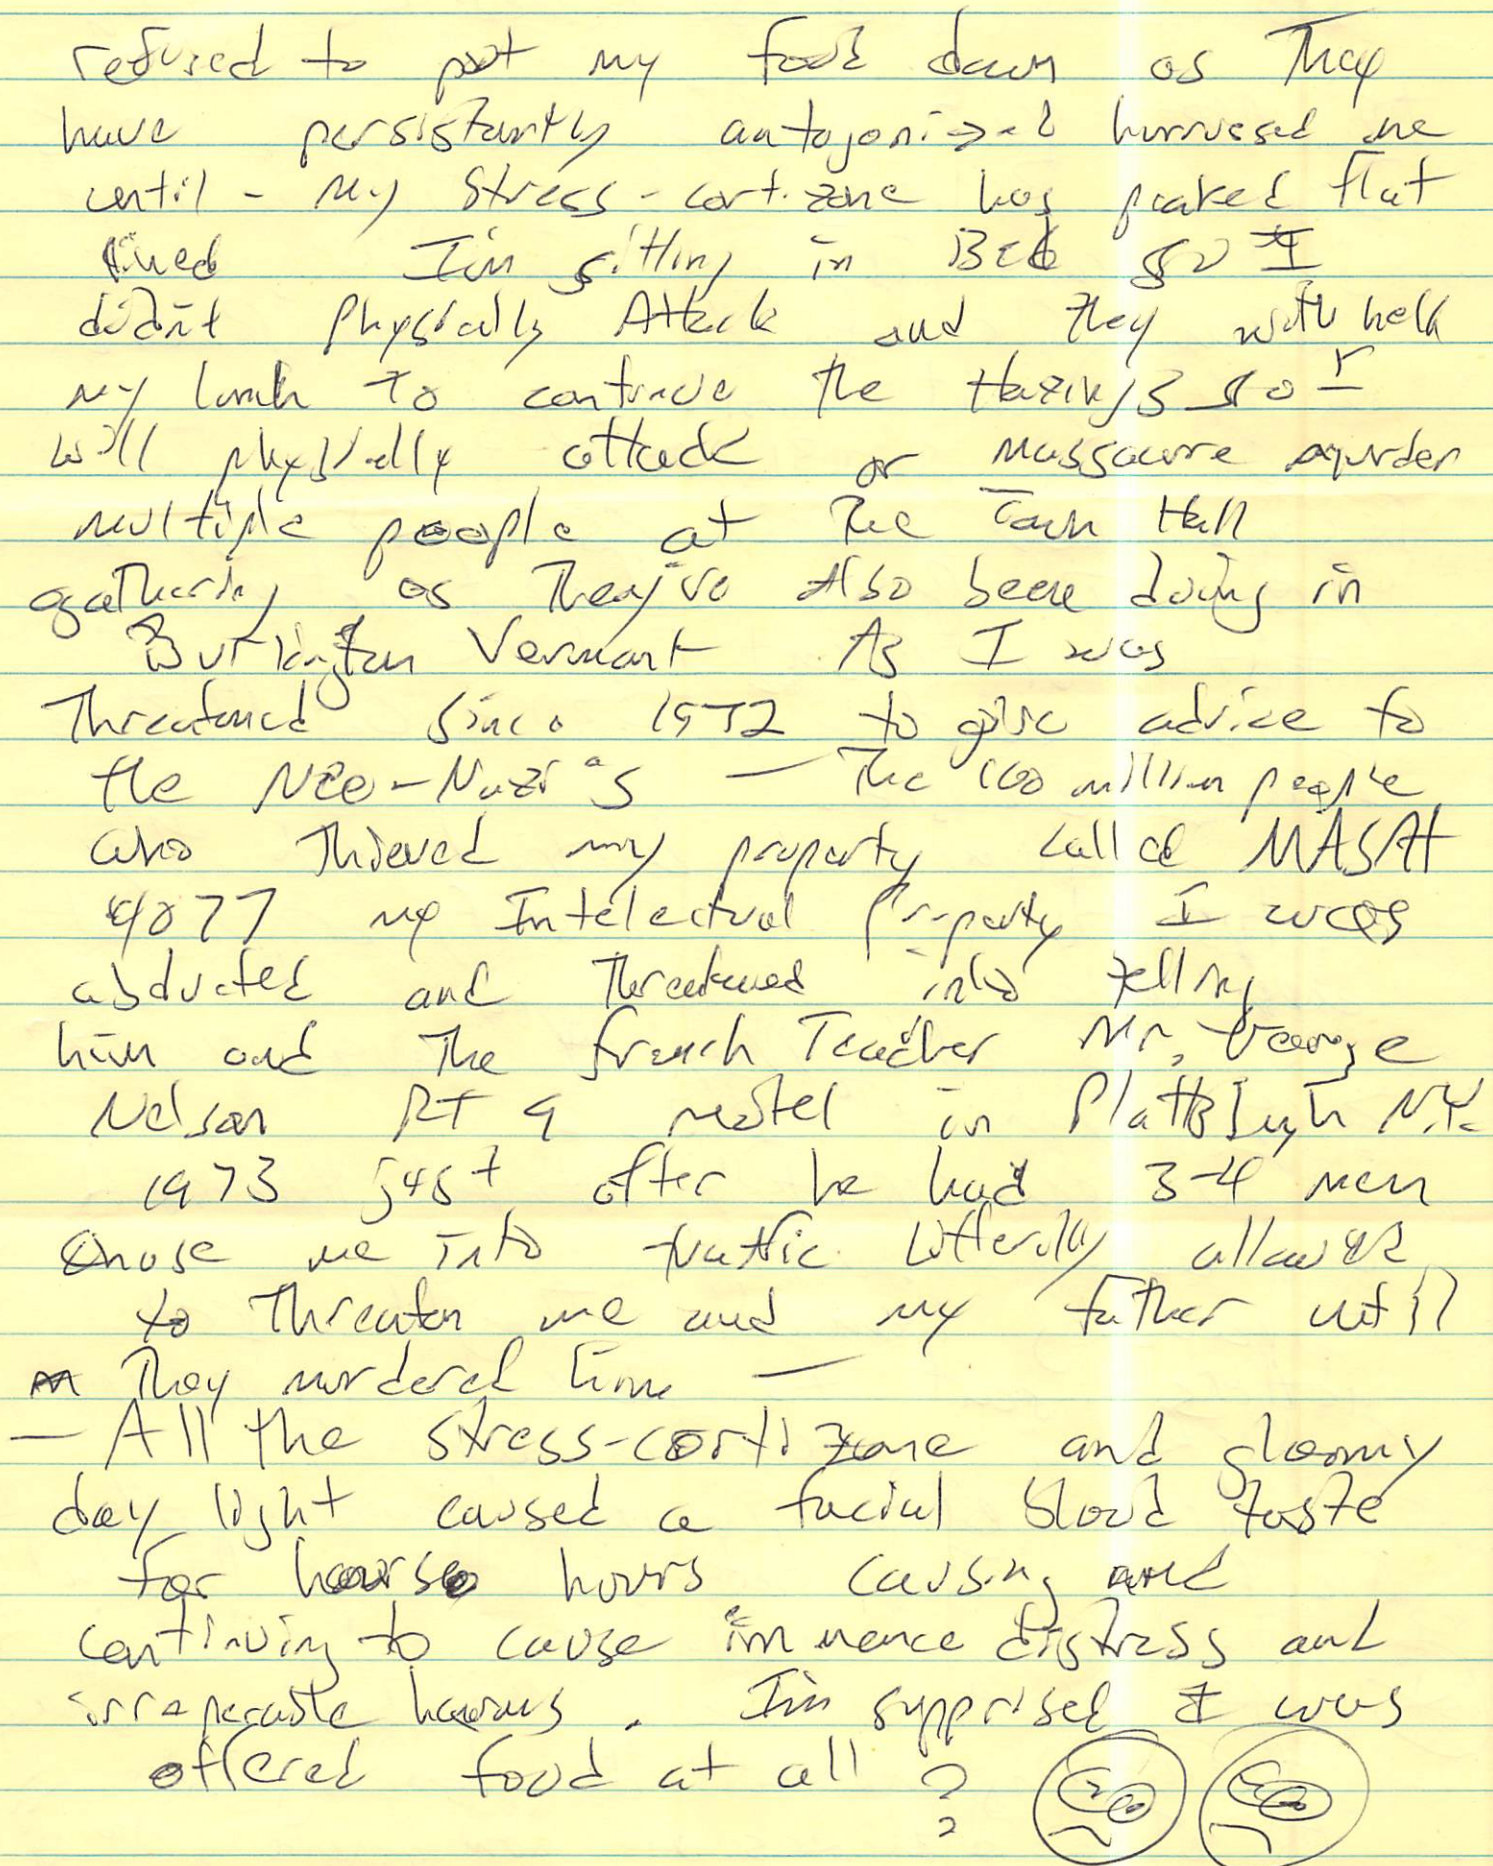 refused to put my food down as They
have persistantly antagonized harrased me
until - my Stress-cortizone has peaked flat
lined I'm sitting in Bed so I
didn't Physically Attack and they withheld
my lunch To continue the Hazings so I
will physically attack or massacure murder
multiple people at the Town Hall
gathering as They've Also been doing in
Burlington Vermont As I was
Threatened since 1972 to give advice to
the Neo-Nazi's — The 100 million people
who Thieved my property called MASH
4077 my Intelectual Property I was
abducted and Threatened into telling
him and The french Teacher Mr. George
Nelson RT 9 motel in Plattsburgh N.Y.
1973 just after he had 3-4 men
chase me into traffic litterally allowed
to Threaten me and my father until
They murdered him —
— All the stress-cortizone and gloomy
day light caused a facial blood taste
for hours causing and
continuing to cause immence distress and
irreperable harms. I'm supprised I was
offered food at all ? ?